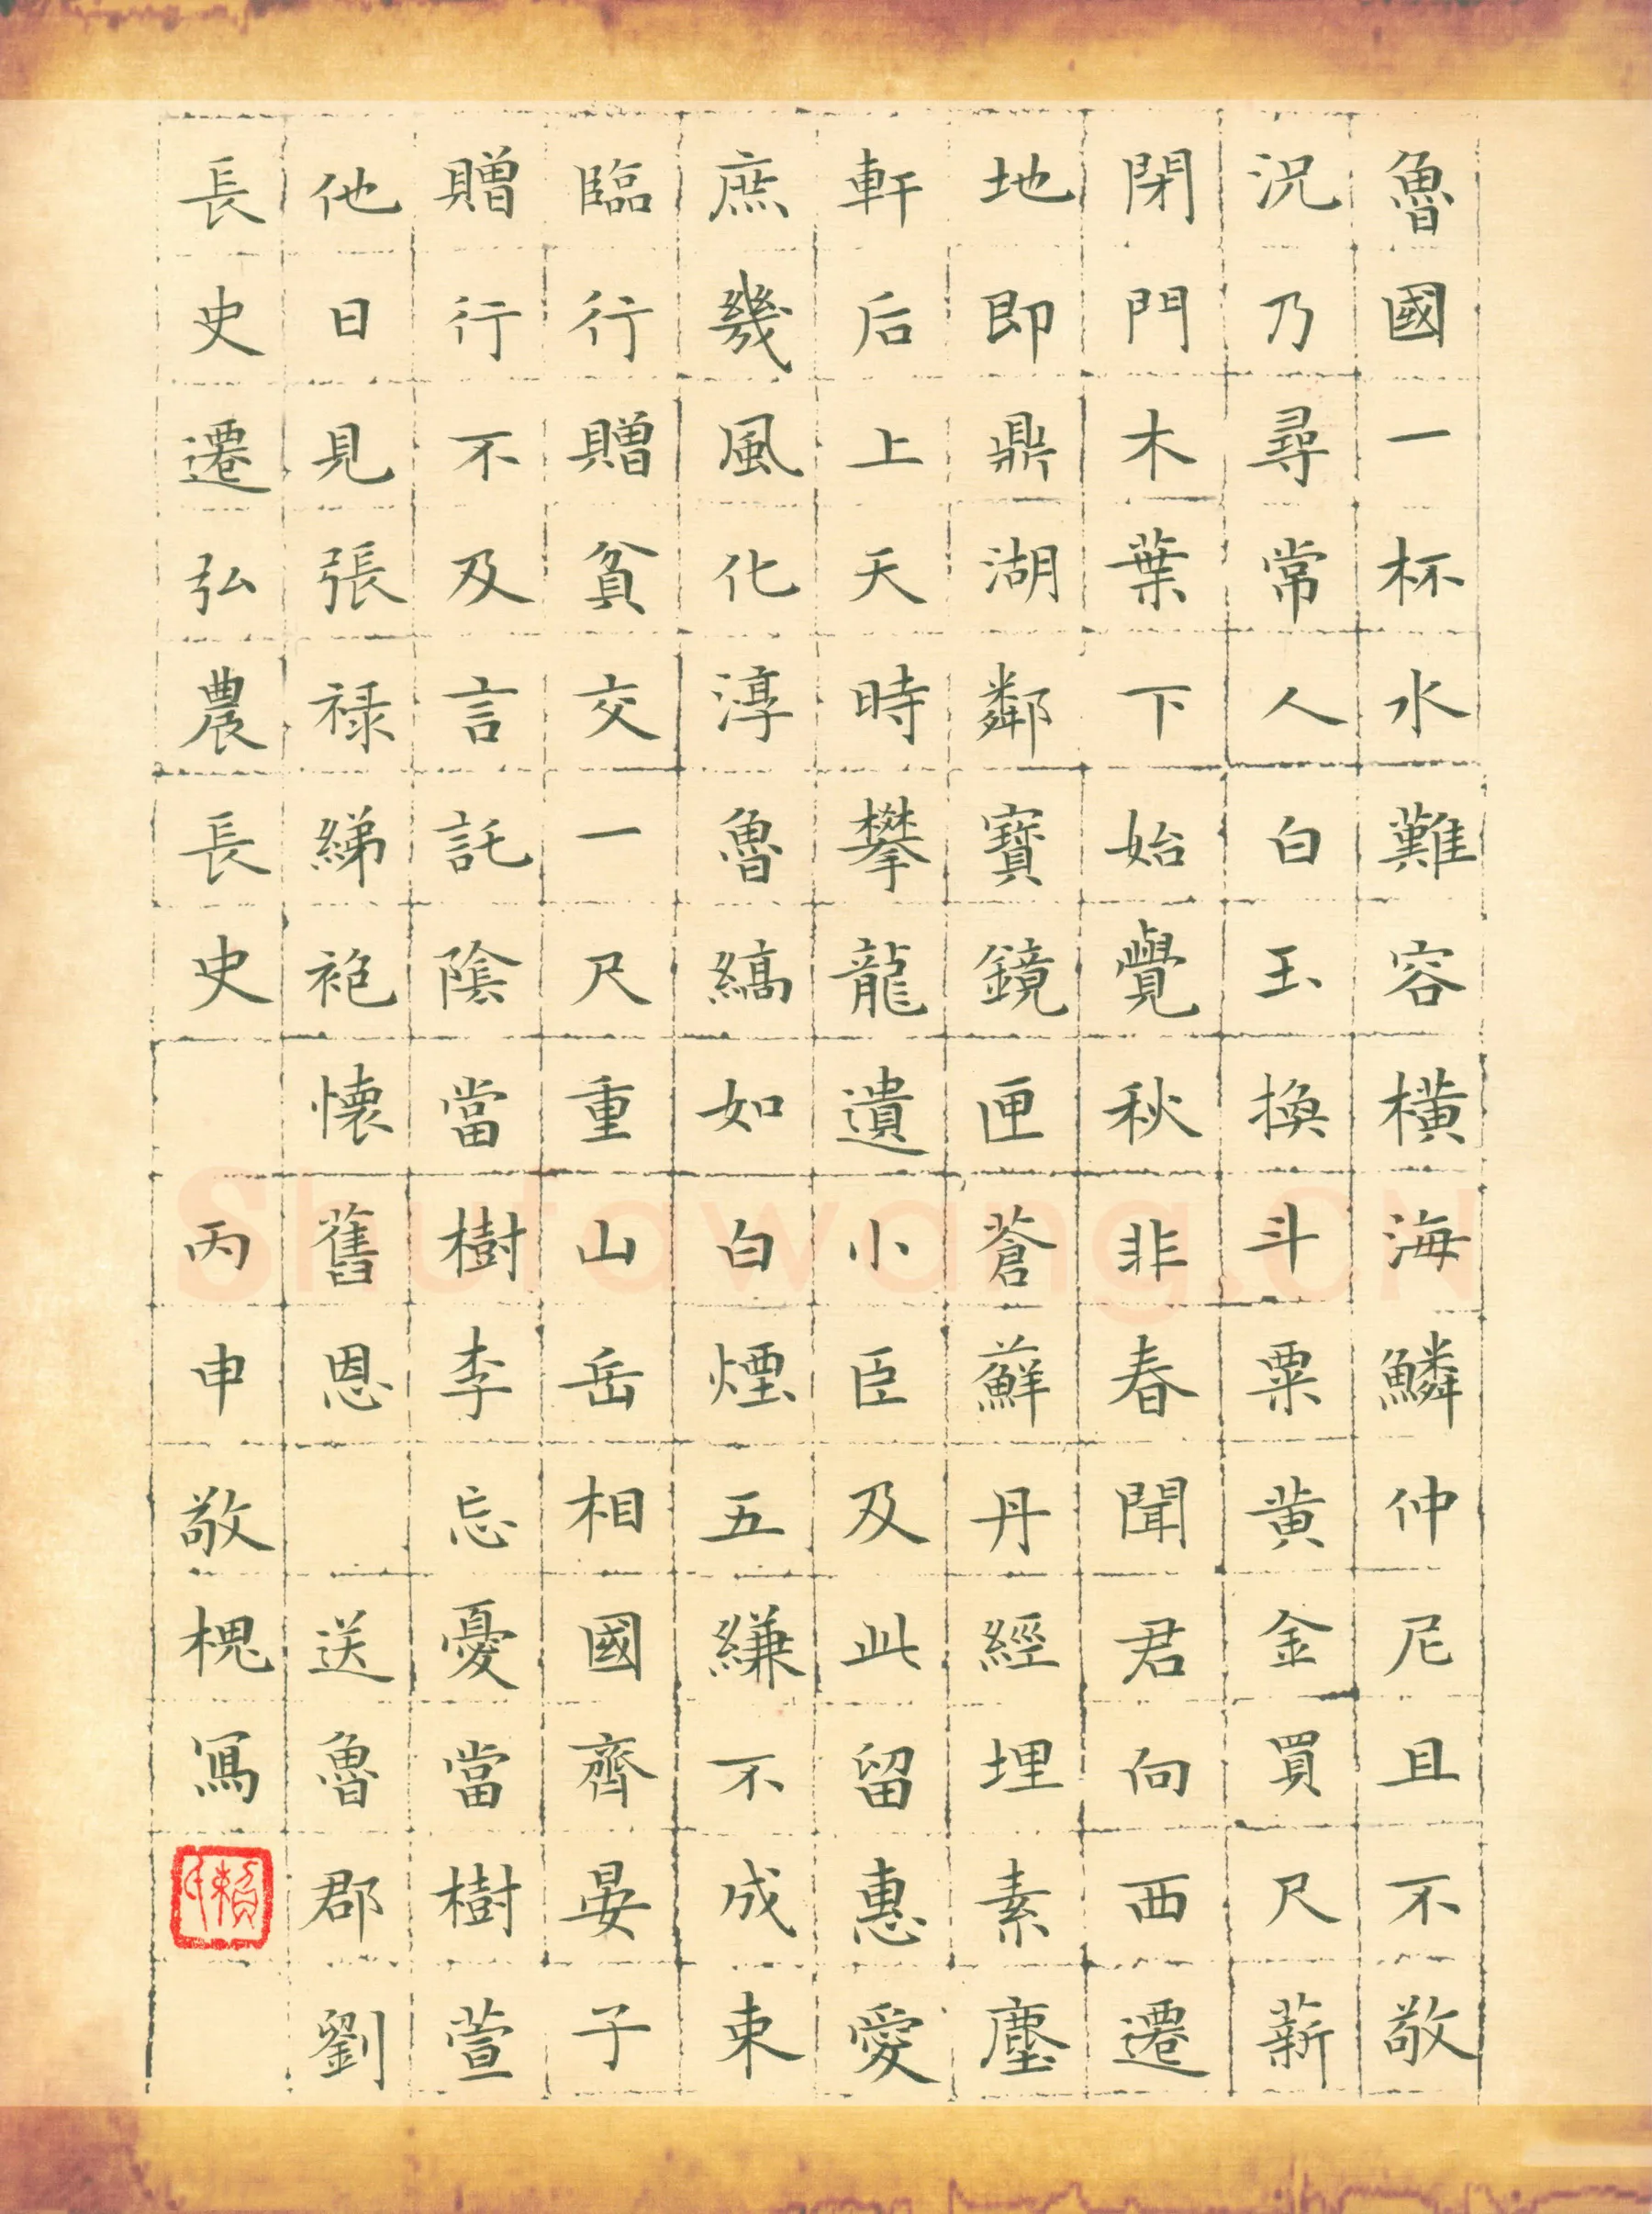 魯國一杯水難容橫海鱗仲尼且不敬
況乃尋常人白玉換斗粟黃金買尺薪
閉門木葉下始覺秋非春聞君向西遷
地即鼎湖鄰寶鏡匣蒼蘚丹經埋素塵
軒后上天時攀龍遺小臣及此留惠愛
庶幾風化淳魯縞如白煙五縑不成束
臨行贈貧交一尺重山岳相國齊晏子
贈行不及言託陰當樹李忘憂當樹萱
他日見張祿綈袍懷舊恩 送魯郡劉
長史遷弘農長史 丙申敬槐寫
賴氏
Shufawang.CN